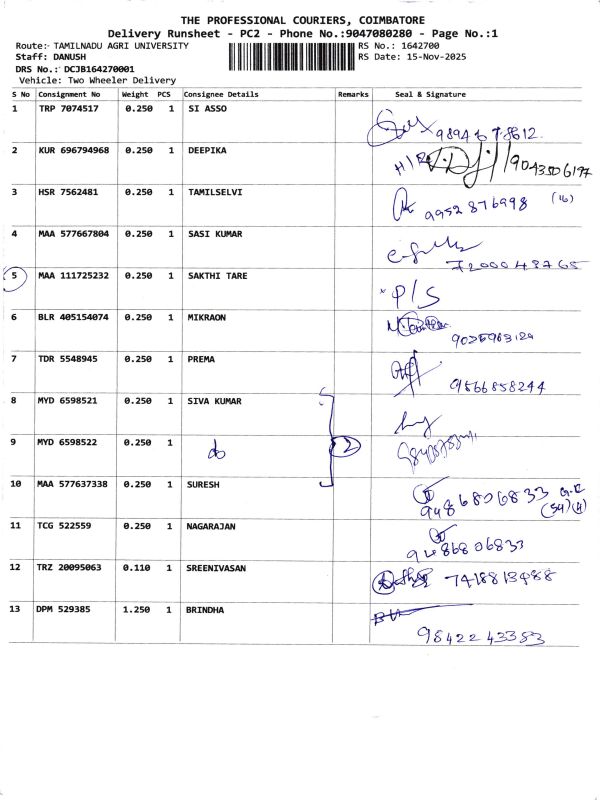 THE PROFESSIONAL COURIERS, COIMBATORE
Delivery Runsheet - PC2 - Phone No.:9047080280 - Page No.:1
Route:- TAMILNADU AGRI UNIVERSITY RS No.: 1642700
Staff: DANUSH RS Date: 15-Nov-2025
DRS No.: DCJB164270001
Vehicle: Two Wheeler Delivery
S No Consignment No Weight PCS Consignee Details Remarks Seal & Signature
1 TRP 7074517 0.250 1 SI ASSO
2 KUR 696794968 0.250 1 DEEPIKA 9043506197
3 HSR 7562481 0.250 1 TAMILSELVI 9952876998 (16)
4 MAA 577667804 0.250 1 SASI KUMAR 7200048765
5 MAA 111725232 0.250 1 SAKTHI TARE P/S
6 BLR 405154074 0.250 1 MIKRAON
7 TDR 5548945 0.250 1 PREMA 9566858244
8 MYD 6598521 0.250 1 SIVA KUMAR
9 MYD 6598522 0.250 1 do 2
10 MAA 577637338 0.250 1 SURESH 9486806833
11 TCG 522559 0.250 1 NAGARAJAN 9486806833
12 TRZ 20095063 0.110 1 SREENIVASAN
13 DPM 529385 1.250 1 BRINDHA 9842243383